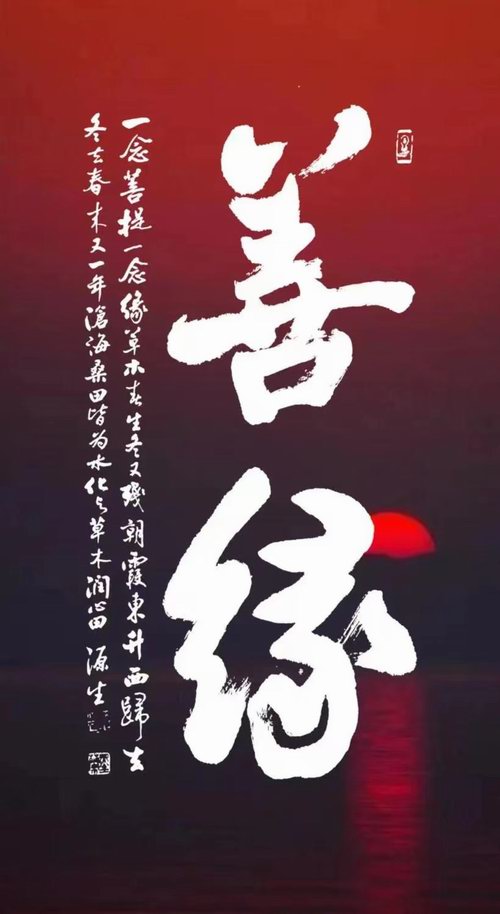 善缘
一念菩提一念缘草木春生冬又残朝霞東升西歸去
冬去春来又一年滄海桑田皆为水化与草木润心田 源生